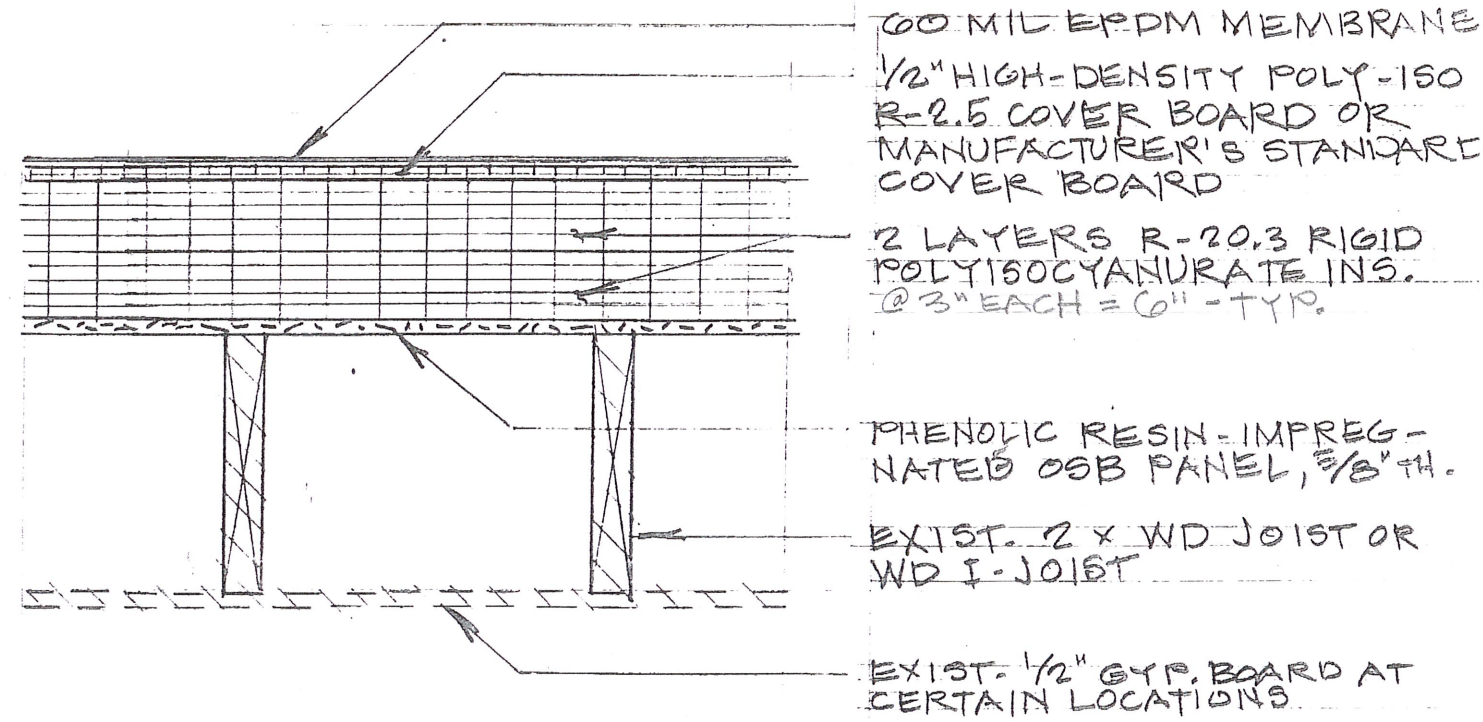 60 MIL EPDM MEMBRANE
1/2" HIGH-DENSITY POLY-ISO
R-2.5 COVER BOARD OR
MANUFACTURER'S STANDARD
COVER BOARD
2 LAYERS R-20.3 RIGID
POLYISOCYANURATE INS.
@ 3" EACH = 6" - TYP.
PHENOLIC RESIN-IMPREG-
NATED OSB PANEL, 5/8" TH.
EXIST. 2 x WD JOIST OR
WD I-JOIST
EXIST. 1/2" GYP. BOARD AT
CERTAIN LOCATIONS